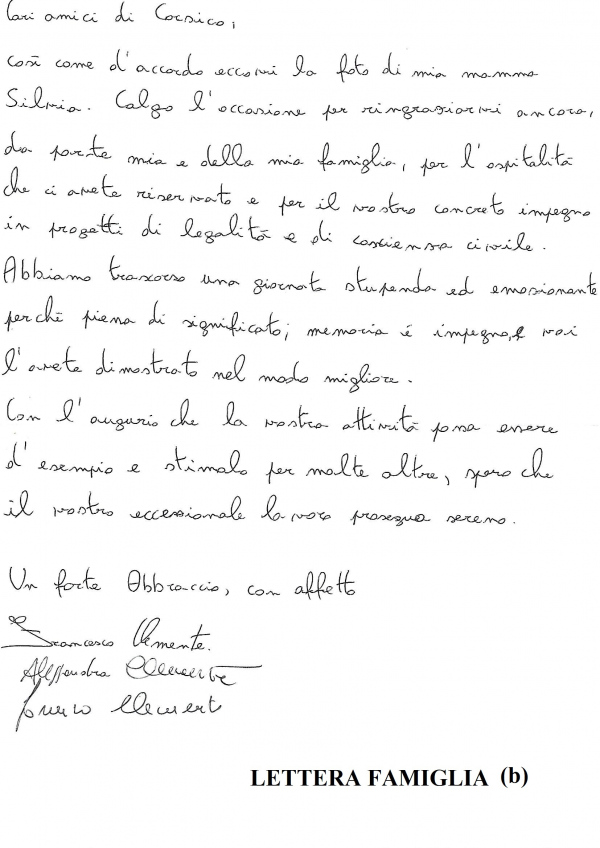 Cari amici di Corsico,
così come d'accordo eccomi la foto di mia mamma
Silvia. Colgo l'occasione per ringraziarvi ancora,
da parte mia e della mia famiglia, per l'ospitalità
che ci avete riservato e per il vostro concreto impegno
in progetti di legalità e di coscienza civile.
Abbiamo trascorso una giornata stupenda ed emozionante
perchè piena di significato; memoria é impegno, e voi
l'avete dimostrato nel modo migliore.
Con l'augurio che la vostra attività possa essere
d'esempio e stimolo per molte altre, spero che
il vostro eccezionale lavoro prosegua sereno.
Un forte Abbraccio, con affetto
Francesco Clemente.
Alessandra Clemente
Clement
LETTERA FAMIGLIA (b)